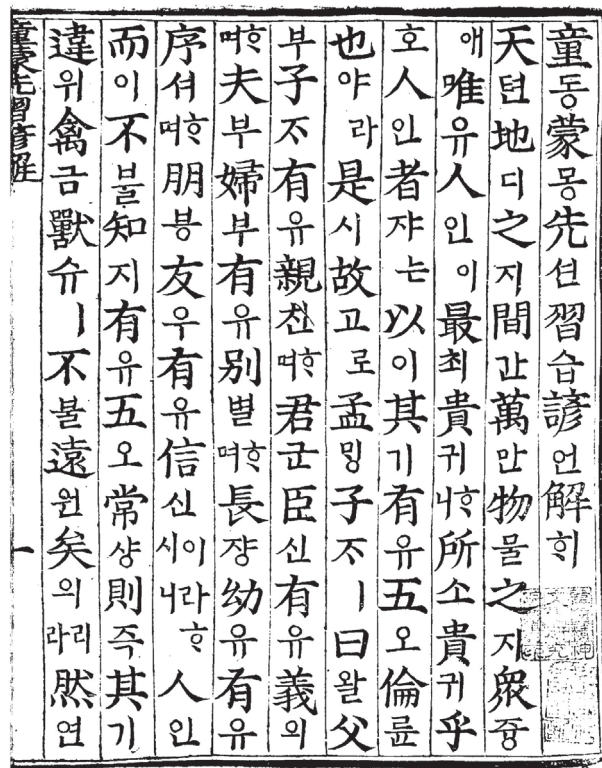 童동蒙몽先션習습諺언解ᄒᆡ
天텬地디之지間간萬만物물之지衆즁
애唯유人인이最최貴귀ᄒᆞ니所소貴귀乎
호人인者쟈는以이其기有유五오倫륜
也야라是시故고로孟ᄆᆡᆼ子ᄌᆞㅣ曰왈父
부子ᄌᆞ有유親친ᄒᆞ며君군臣신有유義의
ᄒᆞ며夫부婦부有유別별ᄒᆞ며長쟝幼유有유
序셔ᄒᆞ며朋븡友우有유信신이라ᄒᆞ시니人인
而이不불知지有유五오常샹則즉其기
違위禽금獸슈ㅣ不불遠원矣의리라然연
童蒙先習諺解 一